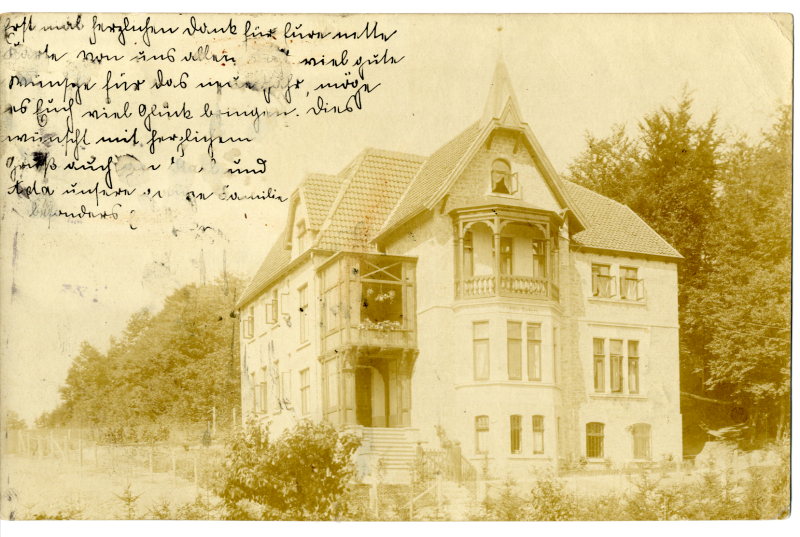 Erst mal herzlichen Dank für Eure nette
Karte, von uns allen viel gute
Wünsche für das neue Jahr, möge
es Euch viel Glück bringen. Dies
wünscht mit herzlichem
Gruß auch und
unsere Familie
besonders